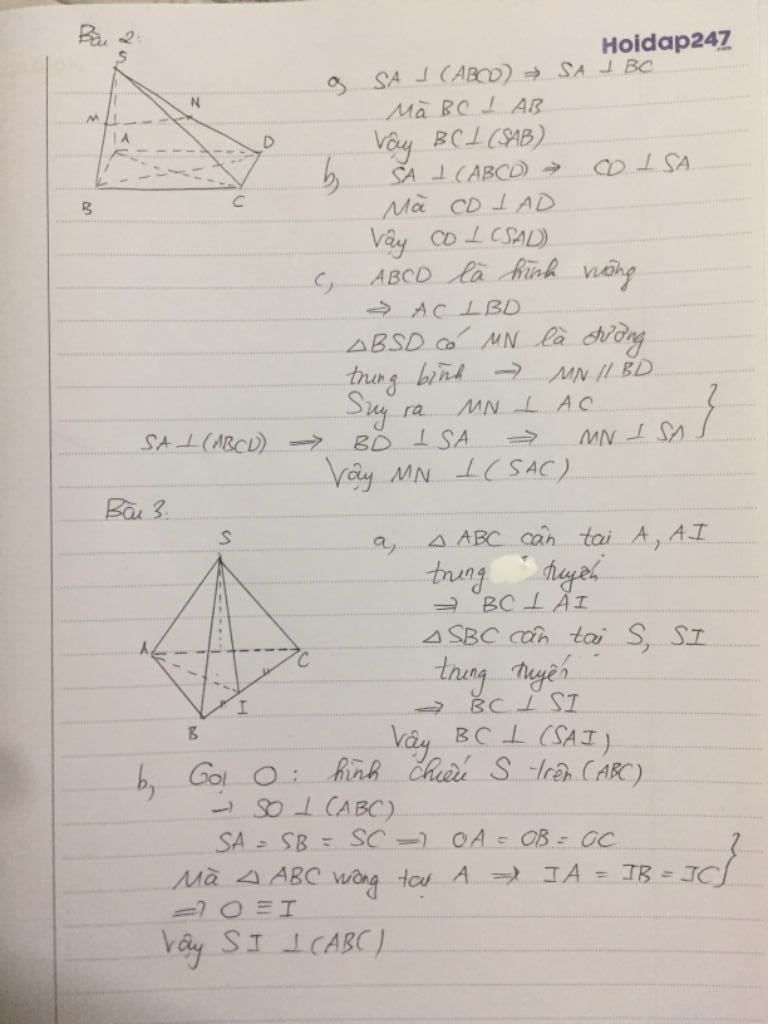 Bài 2:
Hoidap247
.com
S
M
N
A
D
B
C
a, SA ⊥ (ABCD) ⇒ SA ⊥ BC
Mà BC ⊥ AB
Vậy BC ⊥ (SAB)
b, SA ⊥ (ABCD) ⇒ CD ⊥ SA
Mà CD ⊥ AD
Vậy CD ⊥ (SAD)
c, ABCD là hình vuông
⇒ AC ⊥ BD
△BSD có MN là đường
trung bình ⇒ MN // BD
Suy ra MN ⊥ AC
SA ⊥ (ABCD) ⇒ BD ⊥ SA ⇒ MN ⊥ SA }
Vậy MN ⊥ (SAC)
Bài 3:
S
A
C
I
B
a, △ ABC cân tại A, AI
trung tuyến
⇒ BC ⊥ AI
△SBC cân tại S, SI
trung tuyến
⇒ BC ⊥ SI
Vậy BC ⊥ (SAI)
b, Gọi O : hình chiếu S trên (ABC)
→ SO ⊥ (ABC)
SA = SB = SC ⇒ OA = OB = OC
Mà △ ABC vuông tại A ⇒ IA = IB = IC }
⇒ O ≡ I
Vậy SI ⊥ (ABC)